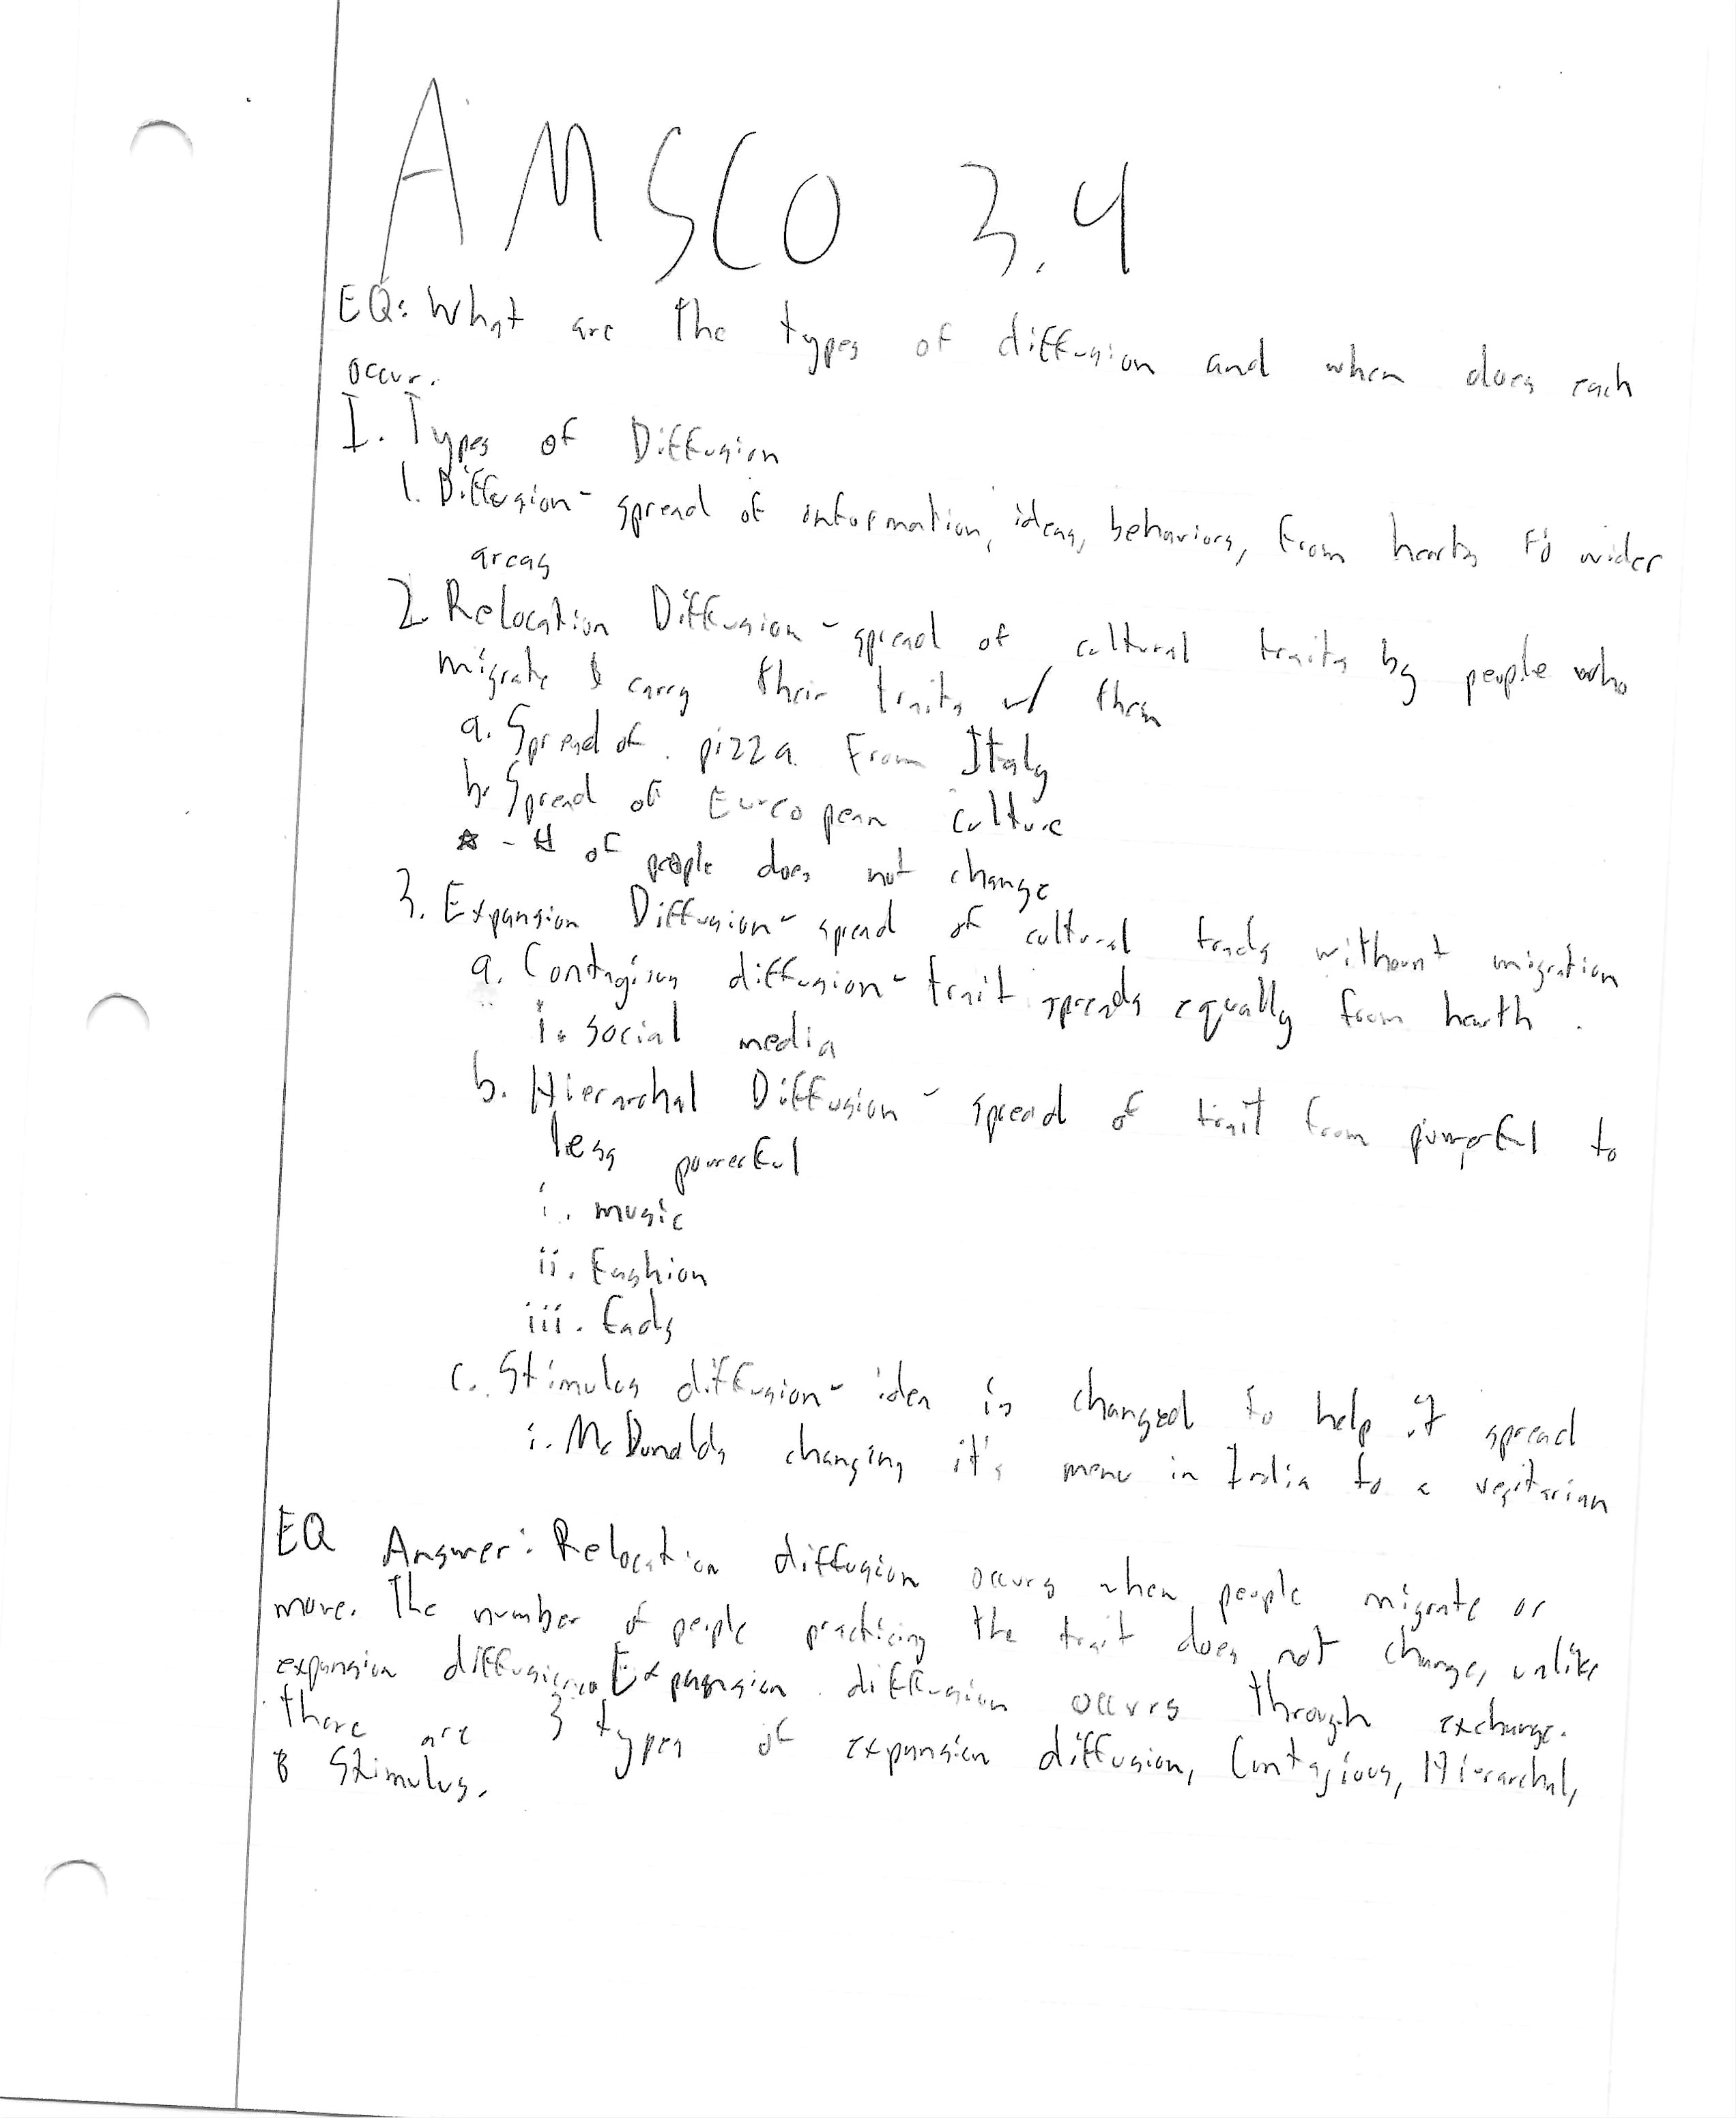 AMSCO 3.4
EQ: What are the types of diffusion and when does each
occur.
I. Types of Diffusion
1. Diffusion - spread of information, ideas, behaviors, from hearths to wider
areas
2. Relocation Diffusion - spread of cultural traits by people who
migrate & carry their traits w/ them
a. Spread of pizza from Italy
b. Spread of European culture
☆ - # of people does not change
3. Expansion Diffusion - spread of cultural trads without migration
a. Contagious diffusion - trait spreads equally from hearth.
i. social media
b. Hierarchal Diffusion - spread of trait from powerful to
less powerful
i. music
ii. fashion
iii. fads
c. Stimulus diffusion - idea is changed to help it spread
i. McDonalds changing it's menu in India to a vegitarian
EQ Answer: Relocation diffusion occurs when people migrate or
move. The number of people practicing the trait does not change, unlike
expansion diffusion. Expansion diffusion occurs through exchange.
there are 3 types of expansion diffusion, Contagious, Hierarchal,
& Stimulus.